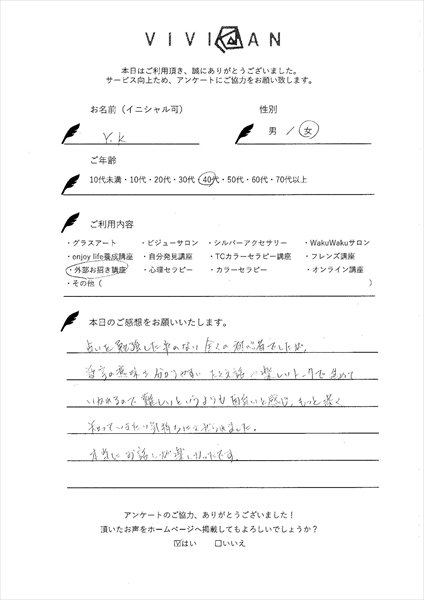 VIVIAN
本日はご利用頂き、誠にありがとうございました。
サービス向上ため、アンケートにご協力をお願い致します。
お名前（イニシャル可） 性別
Y.K 男 ／ 女
ご年齢
10代未満・10代・20代・30代・40代・50代・60代・70代以上
ご利用内容
・グラスアート ・ビジューサロン ・シルバーアクセサリー ・WakuWakuサロン
・enjoy life養成講座 ・自分発見講座 ・TCカラーセラピー講座 ・フレンズ講座
・外部お招き講座 ・心理セラピー ・カラーセラピー ・オンライン講座
・その他（ ）
本日のご感想をお願いいたします。
占いを勉強した事のない全くの初心者でしたが、
言の意味も分かりやすい たとえ話や楽しいトークで進めて
いかれるので難しいというよりも面白いと感じ、もっと深く
知っていきたい気持ちにさせられました。
本当にお話しが楽しかったです。
アンケートのご協力、ありがとうございました！
頂いたお声をホームページへ掲載してもよろしいでしょうか？
☑はい □いいえ